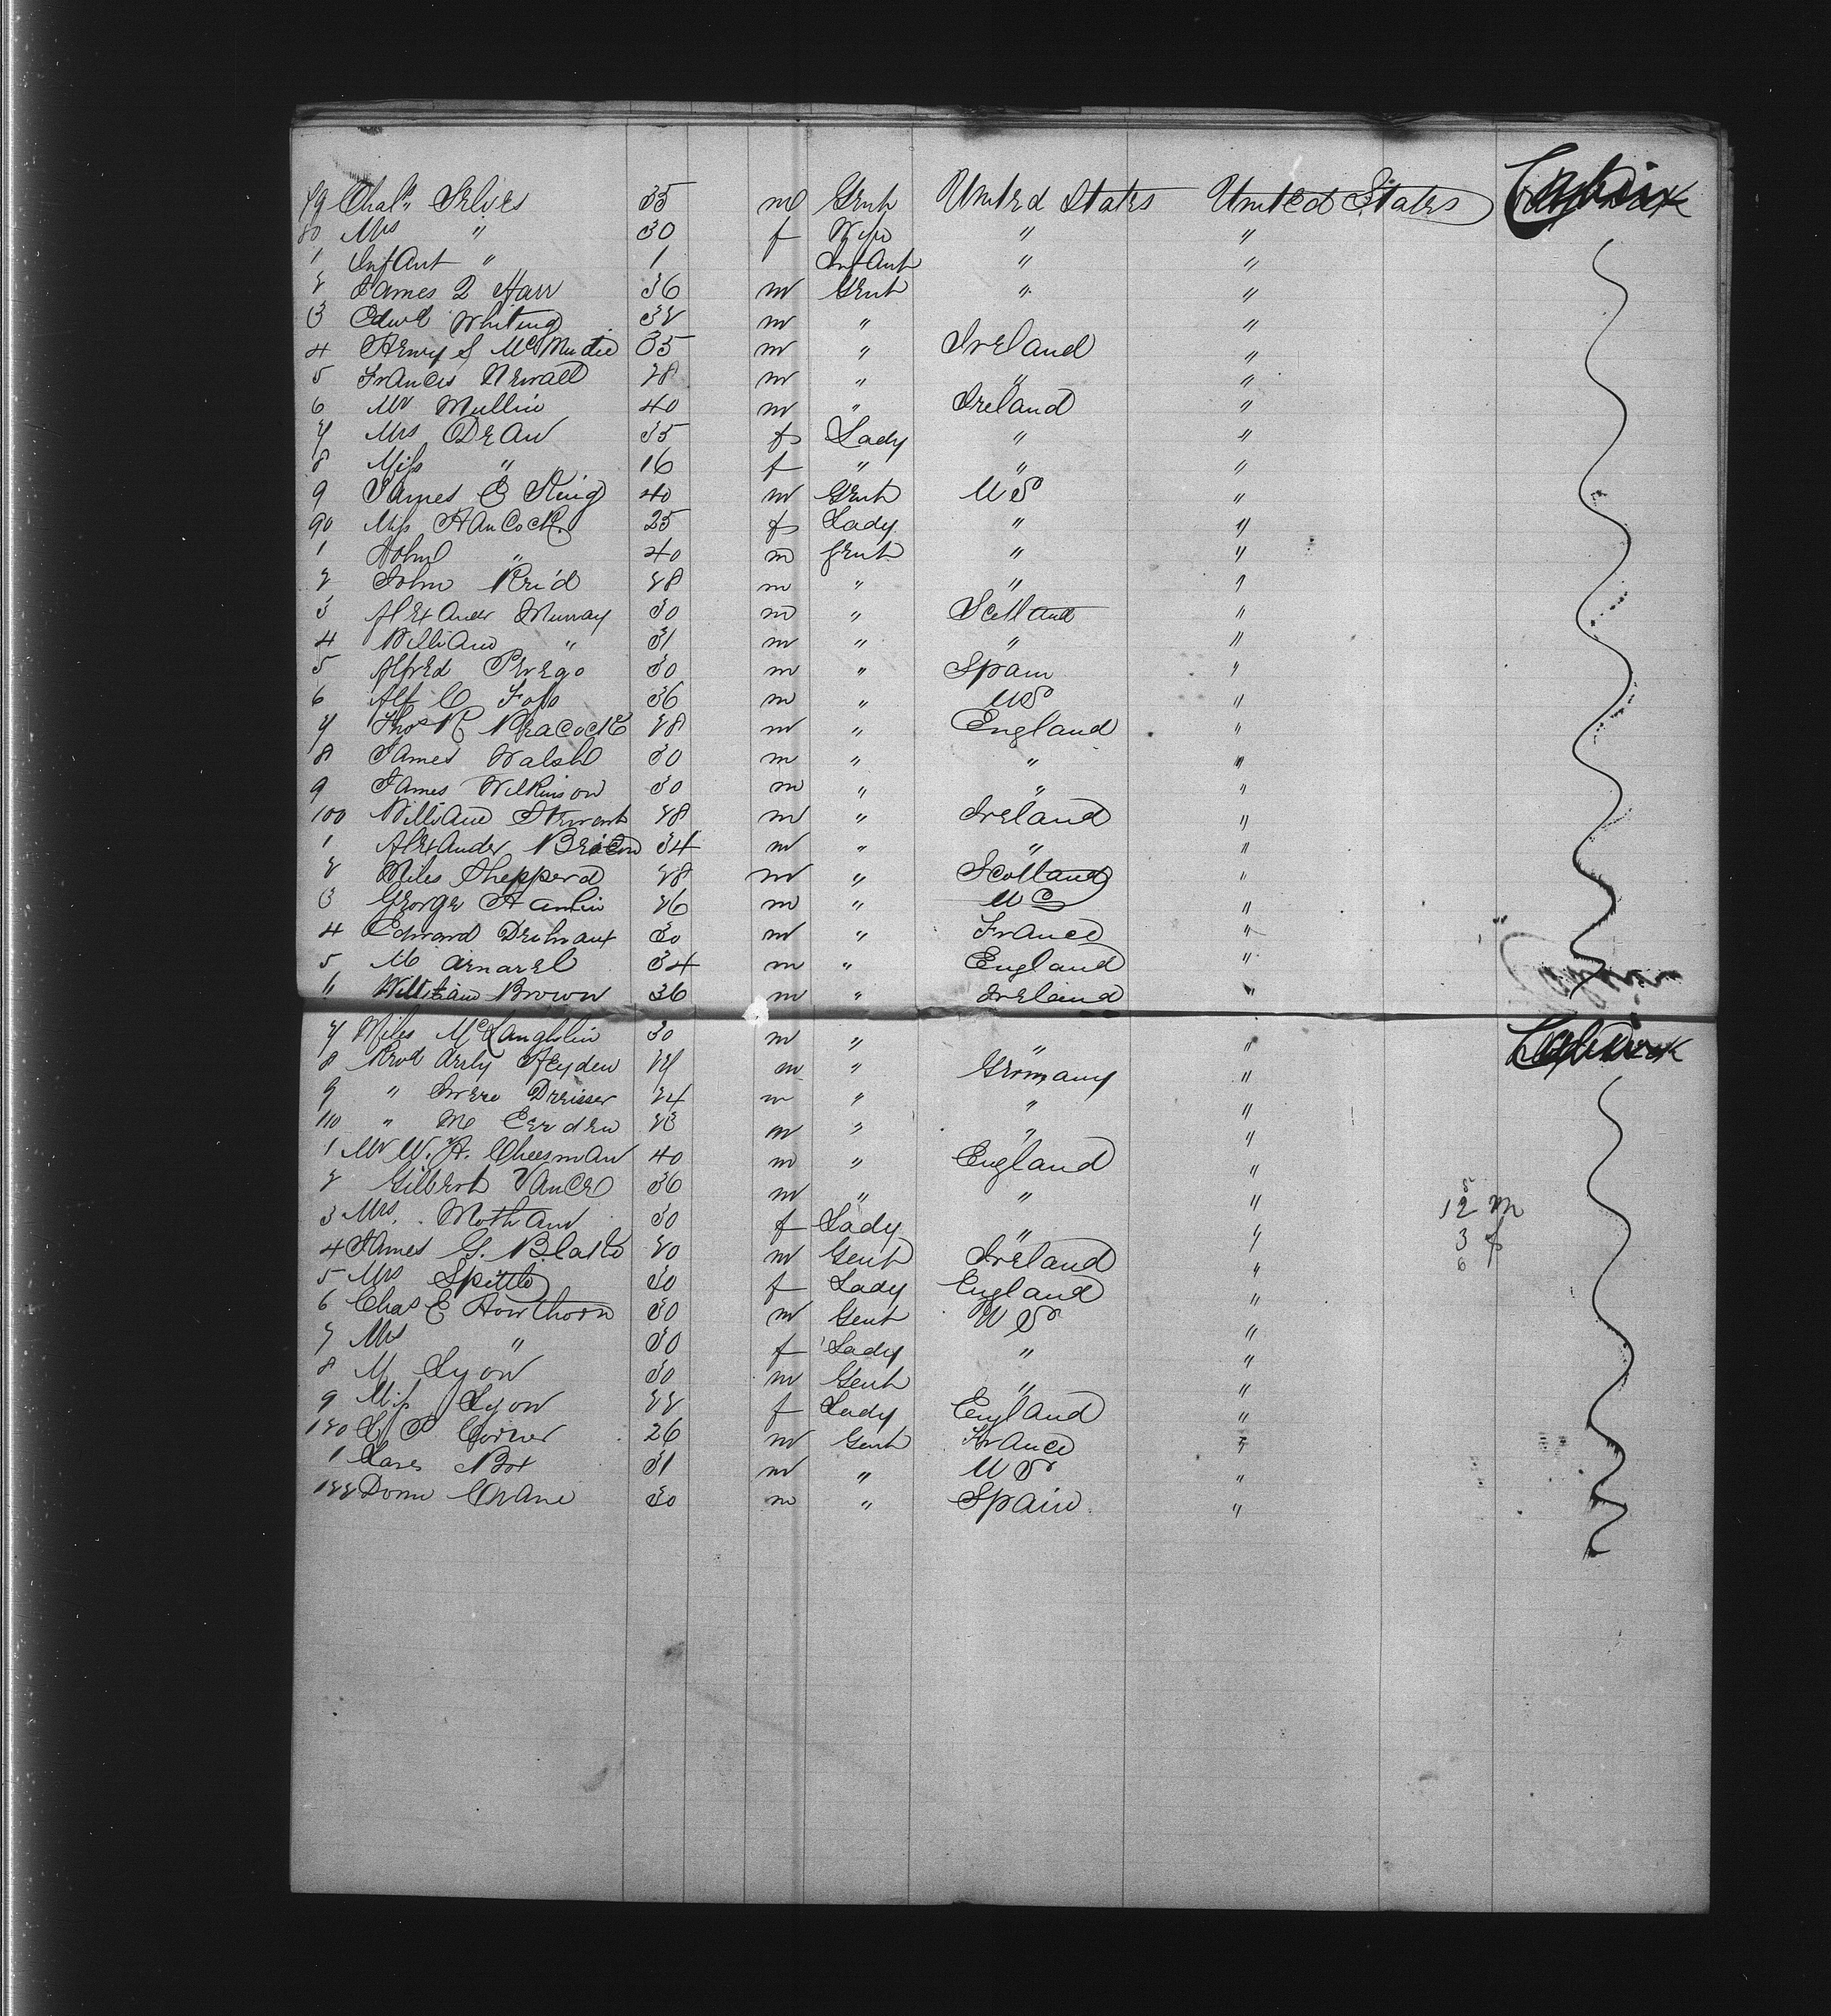 79 Chas. Selves 35 m Gent United States United States Cabin
80 Mrs " 30 f Wife " "
1 Infant " 1 Infant " "
2 James Q Harr 36 m Gent " "
3 Edwd Whiting 32 m " "
4 Henry S McMudie 35 m " Ireland "
5 Francis Newall 28 m " " "
6 Mr Mullin 40 m " Ireland "
7 Mrs Dean 35 f Lady " "
8 Miss " 16 f " " "
9 James E King 40 m Gent U S "
90 Miss Hancock 25 f Lady " "
1 John " 40 m Gent " "
2 John Reid 28 m " " "
3 Alexander Murray 30 m " Scotland "
4 William " 31 m " " "
5 Alfred Perego 30 m " Spain "
6 Alf C Foss 36 m " US "
7 Thos R Peacock 28 m " England "
8 James Walsh 30 m " " "
9 James Wilkinson 30 m " " "
100 William Stewart 28 m " Ireland "
1 Alexander 34 m " " "
2 Miles Shepperd 28 m " Scotland "
3 George Hamlin 26 m " U S "
4 Edward 30 m " France "
5 M Arnarel 34 m " England "
" William Brown 36 m " Ireland "
7 Miles McLaughlin 30 m " " " Cabin
8 Heyden 27 m " Germany "
9 " Dreisser 24 m " " "
110 " 23 m " " "
1 Mr W. H. Cheesman 40 m " England "
2 Gilbert Vance 36 m " " "
3 Mrs. 30 f Lady " " 12 m
4 James G. 20 m Gent Ireland " 3 f
5 Mrs Spittle 30 f Lady England " 6
6 Chas E Howthorn 30 m Gent U S "
7 Mrs " 30 f Lady " "
8 M Lyon 30 m Gent " "
9 Miss Lyon 22 f Lady England "
120 L P Corner 26 m Gent France "
1 31 m " U S "
122 Crane 30 m " Spain "